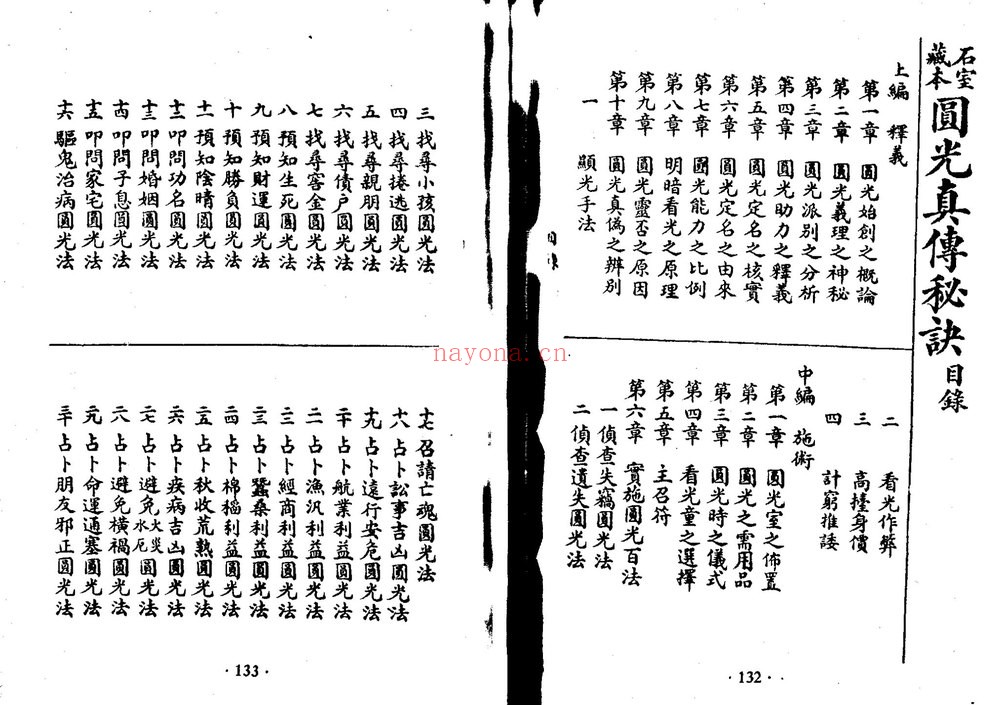 石室藏本圓光真傳秘訣目錄
上編　釋義
第一章　圓光始創之概論
第二章　圓光義理之神秘
第三章　圓光派別之分析
第四章　圓光助力之釋義
第五章　圓光定名之核實
第六章　圓光定名之由來
第七章　圓光能力之比例
第八章　明暗看光之原理
第九章　圓光靈否之原因
第十章　圓光真偽之辨別
一　顯光手法
二　看光作弊
三　高擡身價
四　計窮推諉
中編　施術
第一章　圓光室之佈置
第二章　圓光之需用品
第三章　圓光時之儀式
第四章　看光童之選擇
第五章　主召符
第六章　實施圓光百法
一　偵查失竊圓光法
二　偵查遺失圓光法
·132·
目錄
三　找尋小孩圓光法
四　找尋捲逃圓光法
五　找尋親朋圓光法
六　找尋債户圓光法
七　找尋窖金圓光法
八　預知生死圓光法
九　預知財運圓光法
十　預知勝負圓光法
十一　預知陰晴圓光法
十二　叩問功名圓光法
十三　叩問婚姻圓光法
十四　叩問子息圓光法
十五　叩問家宅圓光法
十六　驅鬼治病圓光法
十七　召請亡魂圓光法
十八　占卜訟事吉凶圓光法
十九　占卜遠行安危圓光法
二十　占卜航業利益圓光法
二一　占卜漁汛利益圓光法
二二　占卜經商利益圓光法
二三　占卜蠶桑利益圓光法
二四　占卜棉稻利益圓光法
二五　占卜秋收荒熟圓光法
二六　占卜疾病吉凶圓光法
二七　占卜避免火災水厄圓光法
二八　占卜避免橫禍圓光法
二九　占卜命運通塞圓光法
三十　占卜朋友邪正圓光法
·133·
nayona.cn